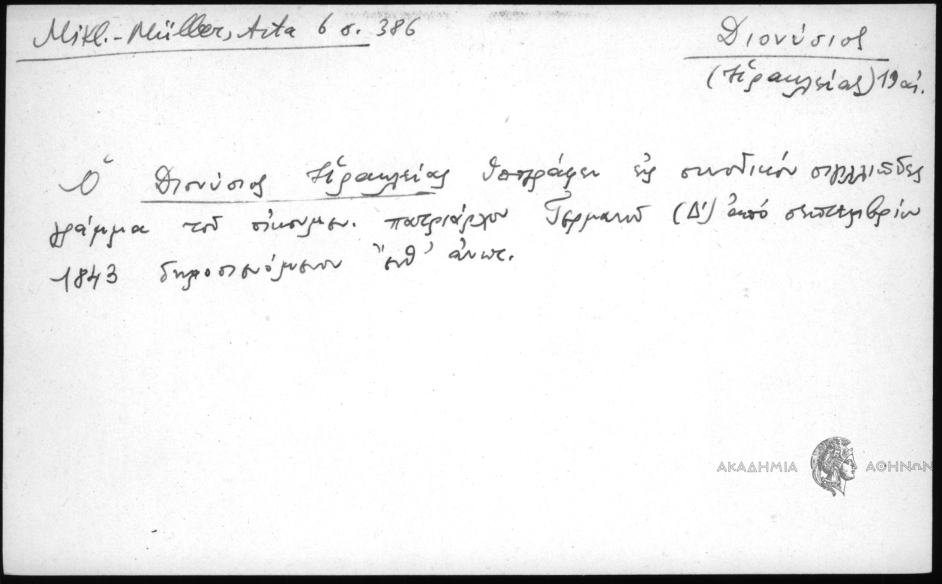 Mikl.-Müller, Acta 6 σ. 386
Διονύσιος
(Ἡρακλείας) 19 αἰ.
Ὁ Διονύσιος Ἡρακλείας ὑπογράφει εἰς συνοδικόν σιγιλλιῶδες
γράμμα τοῦ οἰκουμεν. πατριάρχου Γερμανοῦ (Δ') ἀπό σεπτεμβρίου
1843 δημοσιευόμενον ἔνθ' ἄνωτ.
ΑΚΑΔΗΜΙΑ ΑΘΗΝΩΝ